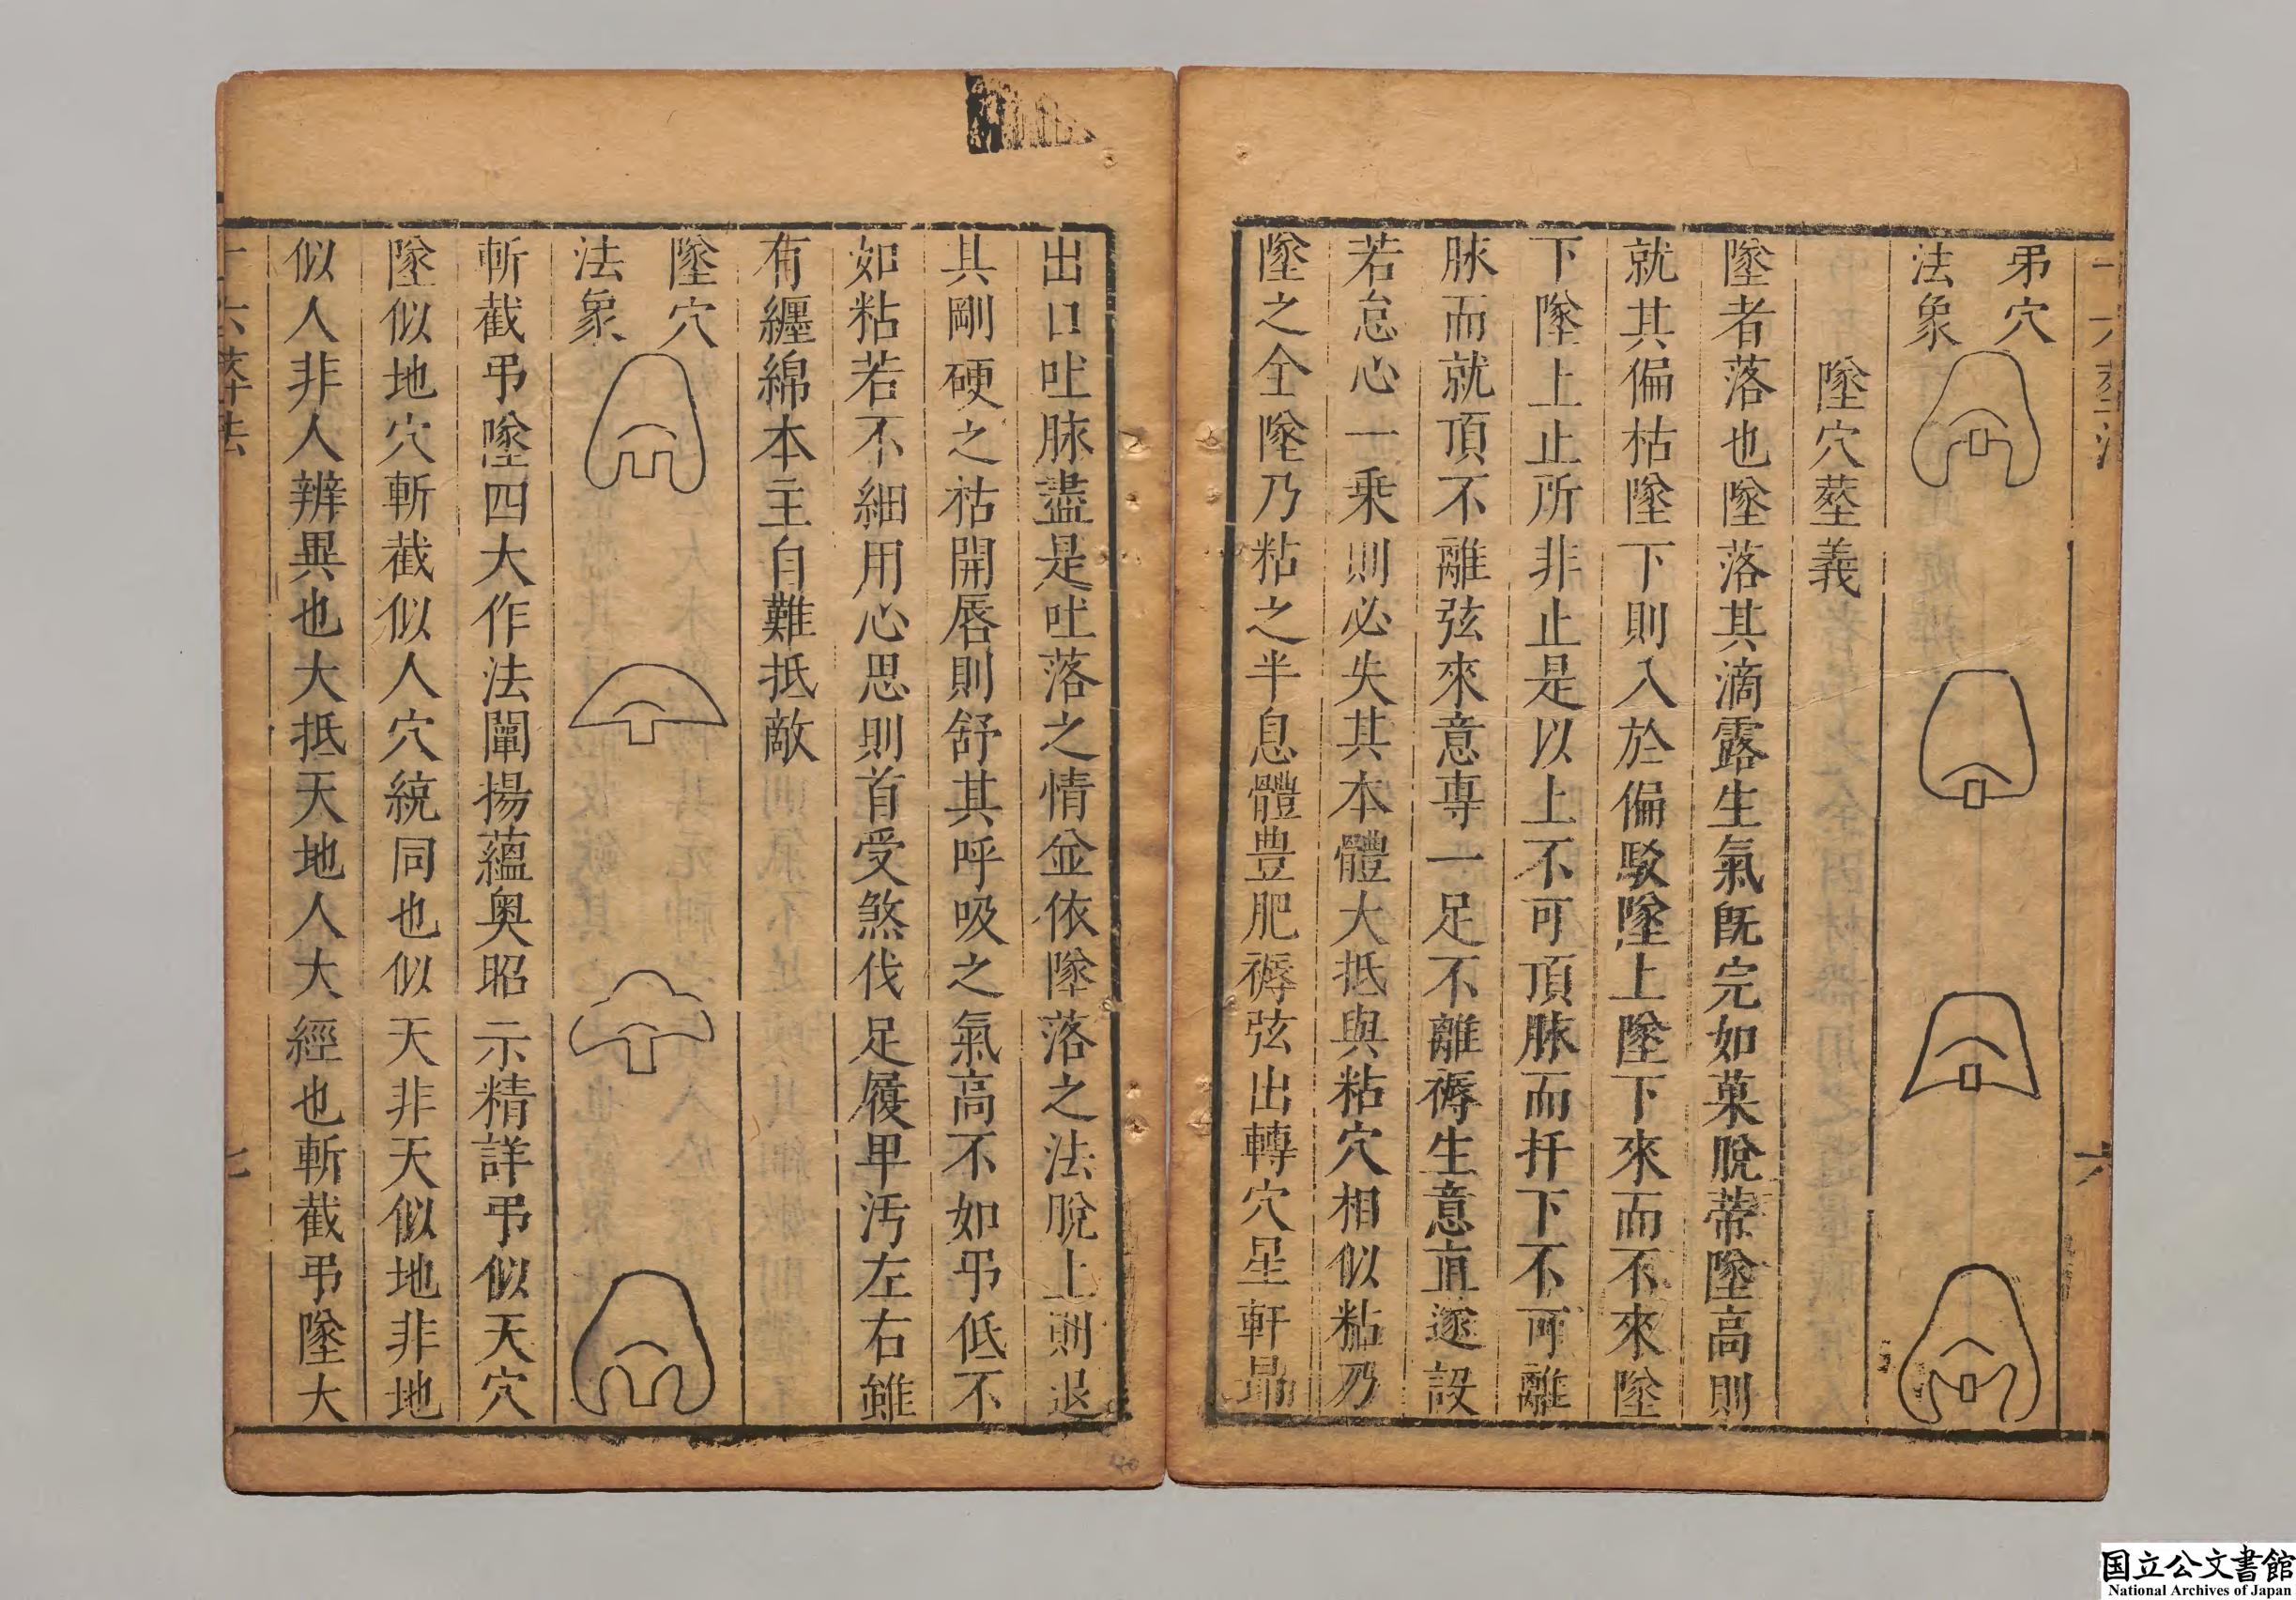 十六葬法
六
弔穴
法象
墜穴葬義
墜者落也墜落其滴露生氣旣完如菓脫蒂墜高則
就其偏枯墜下則入於偏駁墜上墜下來而不來墜
下墜上止所非止是以上不可頂脉而扦下不可離
脉而就頂不離弦來意專一足不離褥生意直遂設
若怠心一乘則必失其本體大抵與粘穴相似粘乃
墜之全墜乃粘之半息體豊肥褥弦出轉穴星軒昻
出口吐脉盡是吐落之情並依墜落之法脫上則退
其剛硬之祜開唇則舒其呼吸之氣高不如弔低不
如粘若不細用心思則首受煞伐足履卑汚左右雖
有纏綿本主自難抵敵
墜穴
法象
斬截弔墜四大作法闡揚蘊奧昭示精詳弔似天穴
墜似地穴斬截似人穴統同也似天非天似地非地
似人非人辨異也大抵天地人大經也斬截弔墜大
十六葬法
七
国立公文書館
National Archives of Japan